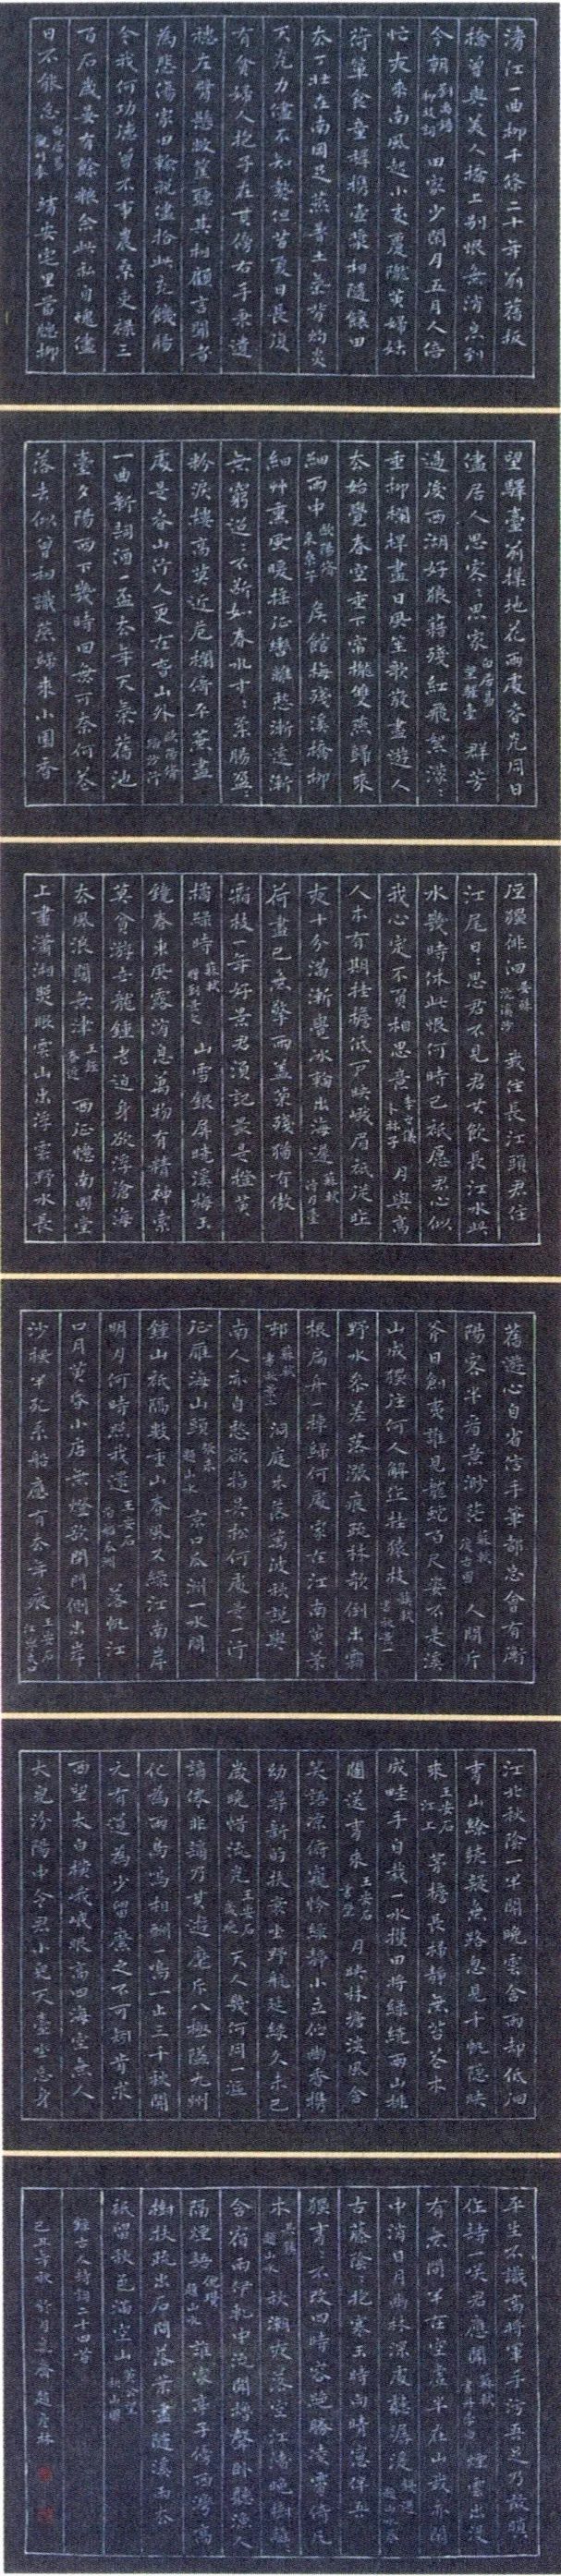 清江一曲柳千條二十年前舊板
橋曾與美人橋上別恨無消息到
今朝 劉禹錫 柳枝詞 田家少閒月五月人倍
忙夜來南風起小麥覆隴黃婦姑
荷簞食童稚攜壺漿相隨餉田
去丁壯在南岡足蒸暑土氣背灼炎
天光力盡不知熱但惜夏日長復
有貧婦人抱子在其傍右手秉遺
穗左臂懸敝筐聽其相顧言聞者
為悲傷家田輸稅盡拾此充飢腸
今我何功德曾不事農桑吏祿三
百石歲晏有餘糧念此私自愧盡
日不能忘 白居易 觀刈麥 靖安宅里當窗柳
望驛臺前撲地花兩處春光同日
盡居人思客客思家 白居易 望驛臺 群芳
過後西湖好狼藉殘紅飛絮濛濛
垂柳欄桿盡日風笙歌散盡遊人
去始覺春空垂下帘櫳雙燕歸來
細雨中 歐陽修 采桑子 候館梅殘溪橋柳
細草薰風暖搖征轡離愁漸遠漸
無窮迢迢不斷如春水寸寸柔腸盈盈
粉淚樓高莫近危欄倚平蕪盡
處是春山行人更在春山外 歐陽修 踏莎行
一曲新詞酒一盃去年天氣舊池
臺夕陽西下幾時回無可奈何花
落去似曾相識燕歸來小園香
徑獨徘徊 晏殊 浣溪沙 我住長江頭君住
江尾日日思君不見君共飲長江水此
水幾時休此恨何時已祇愿君心似
我心定不負相思意 李之儀 卜算子 月與高
人本有期挂簷低戶映蛾眉祇從昨
夜十分滿漸覺冰輪出海遲 蘇軾 待月臺
荷盡已無擎雨蓋菊殘猶有傲
霜枝一年好景君須記最是橙黃
橘綠時 蘇軾 贈劉景文 山雪銀屏曉溪梅玉
鏡春東風露消息萬物有精神索
莫貧游世龍鍾老迫身欲浮滄海
去風浪闊無津 王銍 春近 西征憶南國堂
上畫瀟湘照眼雲山出浮空野水長
舊遊心自省信手筆都忘會有衡
陽客來看意渺茫 蘇軾 人間斤
斧日創夷誰見龍蛇百尺姿不是溪
山成獨往何人解作挂猿枝 蘇軾 書秋景一
野水參差落漲痕疏林欹倒出霜
根扁舟一棹歸何處家在江南黃葉
村 蘇軾 書秋景二 洞庭木落萬波秋說與
南人亦自愁欲指吳松何處是一行
征雁海山頭 張耒 題山水 京口瓜洲一水間
鐘山祇隔數重山春風又綠江南岸
明月何時照我還 王安石 泊船瓜洲 落帆江
口月黃昏小店無燈欲閉門側出岸
沙楓半死系船應有去年痕 王安石 江寧夾口
江北秋陰一半開晚雲含雨却低洄
青山繚繞疑無路忽見千帆隱映
來 王安石 江上 茅檐長掃靜無苔花木
成畦手自栽一水護田將綠繞兩山排
闥送青來 王安石 書壁 月映林塘淡風含
笑語涼俯窺憐綠靜小立佇幽香攜
幼尋新的扶衰坐野航延緣久未已
歲晚惜流光 王安石 歲晚 天人幾何同一漚
謫仙非謫乃其遊麾斥八極隘九州
化為兩鳥鳴相酬一鳴一止三千秋開
元有道為少留縻之不可矧肯求
西望太白橫峨岷眼高四海空無人
大兒汾陽中令君小兒天臺坐忘身
平生不識高將軍手汙吾足乃敢瞋
作詩一笑君應聞 蘇軾 煙雲出沒
有無間半在空虛半在山我亦閑
中消日月幽林深處聽潺湲 題山水卷
古藤陰抱寒玉時向晴窗伴吾
獨青青不改四時容絕勝凌霄倚凡
木 吳鎮 題山水 秋潮夜落空江渚晚樹離
含宿雨伊軋中流聞櫓聲臥聽漁人
隔煙語 倪瓚 題山水 誰家亭子傍西灣高
樹扶疏出石間落葉盡隨溪雨去
祇留秋色滿空山 黃公望 秋山圖
錄古人詩詞二十四首
己丑年秋 月 齋 趙彥林